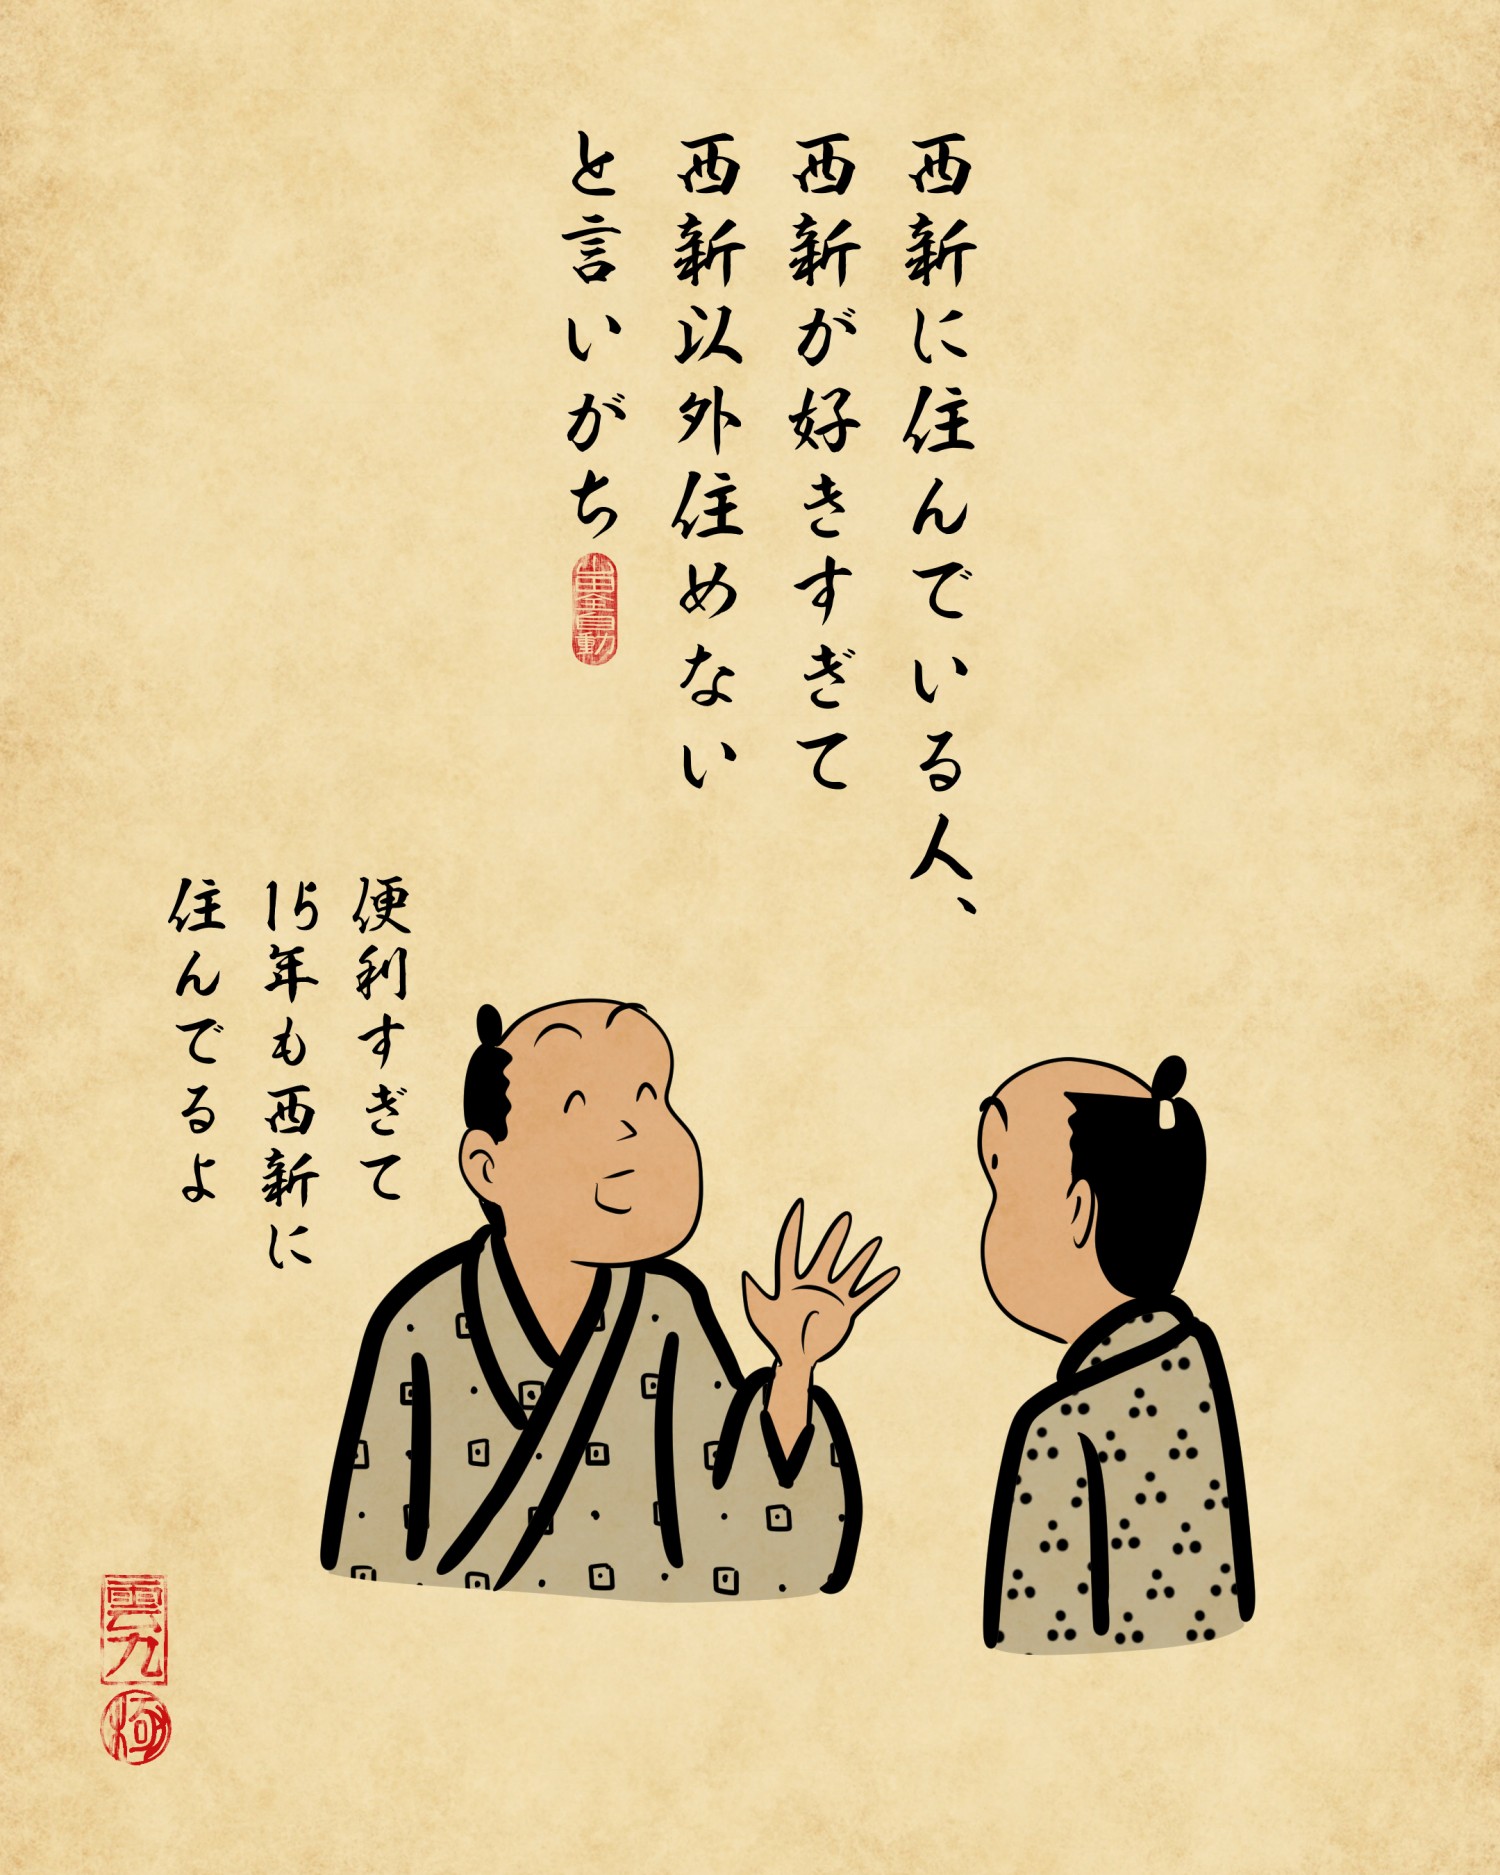 西新に住んでいる人、
西新が好きすぎて
西新以外住めない
と言いがち
便利すぎて
15年も西新に
住んでるよ
雲九
極